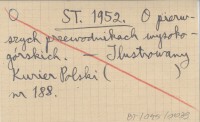 ST. 1952. O pierw-
szych przewodnikach wysoko-
górskich. — Ilustrowany
Kurier Polski (          )
nr 188.